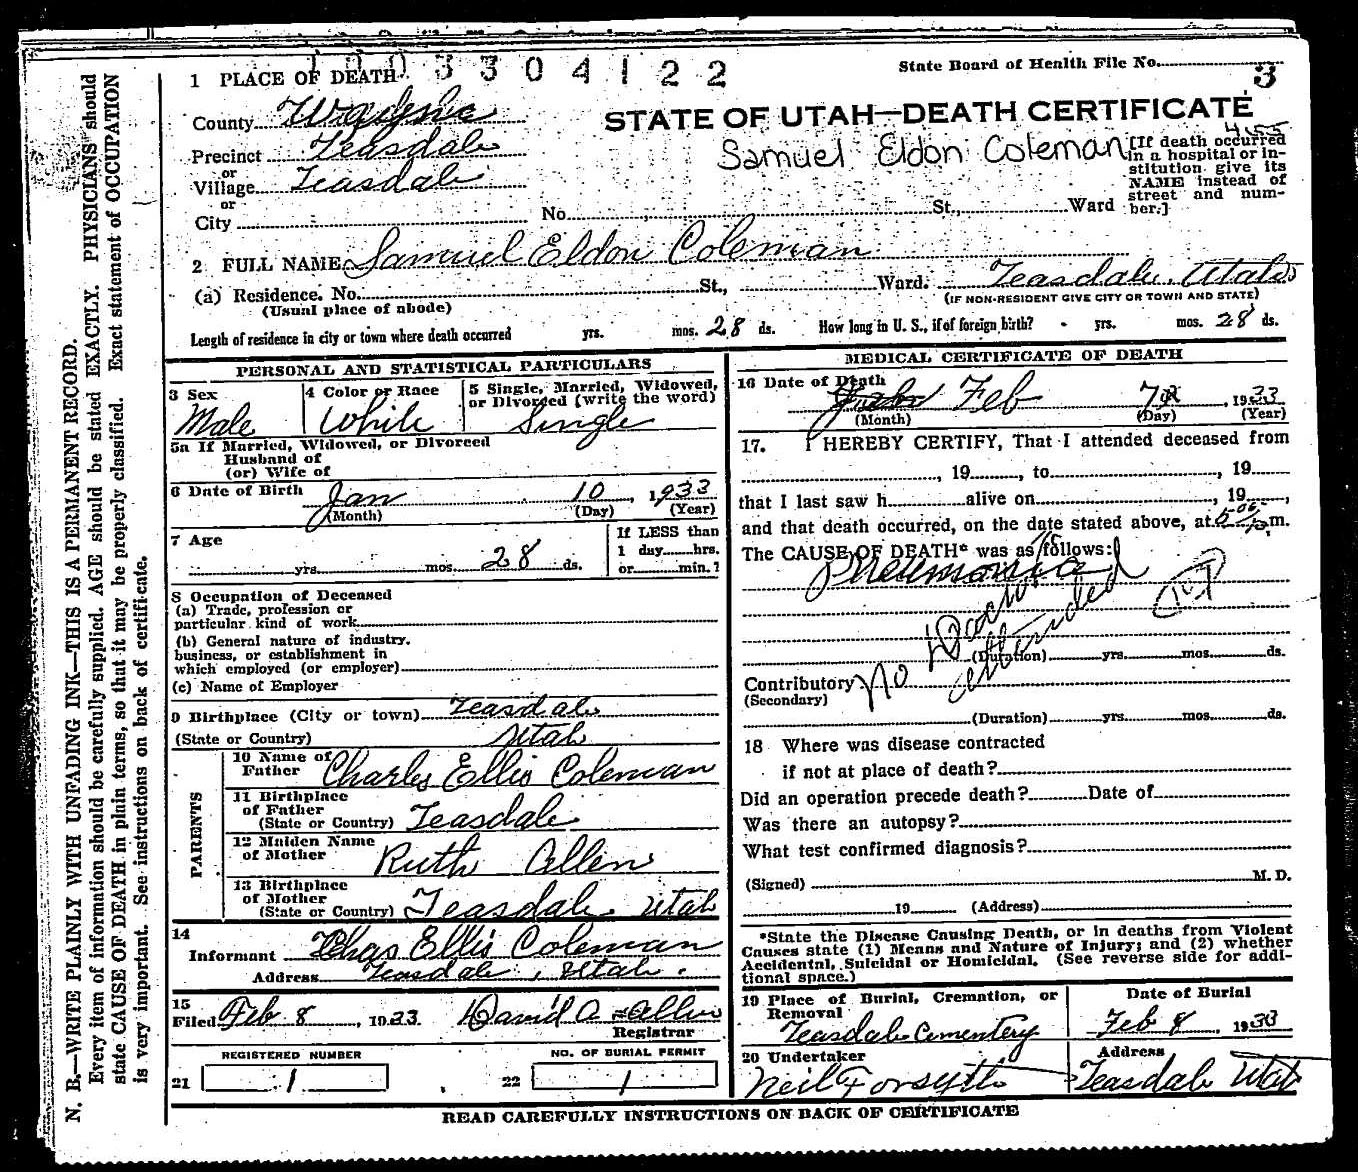 1003304122
State Board of Health File No. 3
1 PLACE OF DEATH
County Wayne
STATE OF UTAH—DEATH CERTIFICATE
Precinct Teasdale
Samuel Eldon Coleman
4155
[If death occurred in a hospital or institution give its NAME instead of street and number.]
or
Village Teasdale
or
City No. St., Ward
2 FULL NAME Samuel Eldon Coleman
(a) Residence. No. St., Ward. Teasdale, Utah
(Usual place of abode) (IF NON-RESIDENT GIVE CITY OR TOWN AND STATE)
Length of residence in city or town where death occurred yrs. mos. 28 ds. How long in U. S., if of foreign birth? yrs. mos. 28 ds.
PERSONAL AND STATISTICAL PARTICULARS
3 Sex 4 Color or Race 5 Single, Married, Widowed, or Divorced (write the word)
Male White Single
5a If Married, Widowed, or Divorced
Husband of
(or) Wife of
6 Date of Birth Jan 10, 1933
(Month) (Day) (Year)
7 Age yrs. mos. 28 ds.
If LESS than
1 day hrs.
or min.?
8 Occupation of Deceased
(a) Trade, profession or
particular kind of work
(b) General nature of industry,
business, or establishment in
which employed (or employer)
(c) Name of Employer
9 Birthplace (City or town) Teasdale
(State or Country) Utah
PARENTS
10 Name of Father Charles Ellis Coleman
11 Birthplace of Father
(State or Country) Teasdale
12 Maiden Name of Mother Ruth Allen
13 Birthplace of Mother
(State or Country) Teasdale Utah
14
Informant Chas Ellis Coleman
Address Teasdale, Utah.
15
Filed Feb 8, 1933 David A Allen
Registrar
REGISTERED NUMBER NO. OF BURIAL PERMIT
21 1 22 1
MEDICAL CERTIFICATE OF DEATH
16 Date of Death
Feb 7, 1933
(Month) (Day) (Year)
17. I HEREBY CERTIFY, That I attended deceased from
, 19 , to , 19
that I last saw h alive on , 19 ,
and that death occurred, on the date stated above, at m.
The CAUSE OF DEATH* was as follows:
Pneumonia
No Doctor attended
(Duration) yrs. mos. ds.
Contributory
(Secondary)
(Duration) yrs. mos. ds.
18 Where was disease contracted
if not at place of death?
Did an operation precede death? Date of
Was there an autopsy?
What test confirmed diagnosis?
(Signed) M. D.
19 (Address)
*State the Disease Causing Death, or in deaths from Violent
Causes state (1) Means and Nature of Injury; and (2) whether
Accidental, Suicidal or Homicidal. (See reverse side for additional space.)
19 Place of Burial, Cremation, or Removal Date of Burial
Teasdale Cementery Feb 8, 1933
20 Undertaker Address
Neil Forsyth Teasdale Utah
READ CAREFULLY INSTRUCTIONS ON BACK OF CERTIFICATE
N. B.—WRITE PLAINLY WITH UNFADING INK—THIS IS A PERMANENT RECORD.
Every item of information should be carefully supplied. AGE should be stated EXACTLY. PHYSICIANS should
state CAUSE OF DEATH in plain terms, so that it may be properly classified. Exact statement of OCCUPATION
is very important. See instructions on back of certificate.